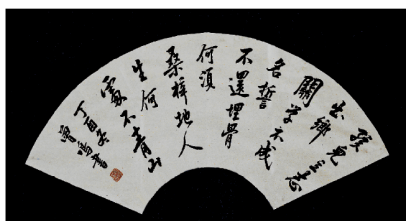 孩兒立志
出鄉
關学不成
名誓
不還埋骨
何須
桑梓地人
生何
處不青山
丁酉